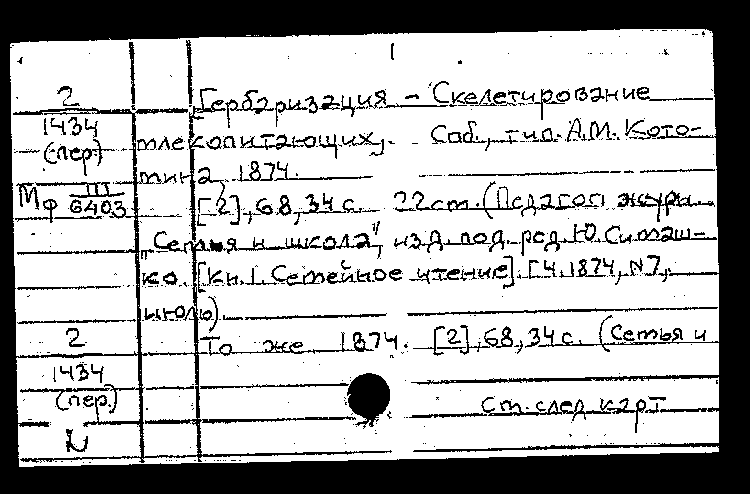 2
1434
(пер.)
Мф III
6403
[Гербаризация – Скелетирование
млекопитающих]. Спб., тип. А.М. Кото-
мина, 1874.
[2], 68, 34 с. 22 см. (Педагог. журн.
"Семья и школа", изд. под. ред. Ю. Симаш-
ко. [Кн. 1. Семейное чтение]. Г 4. 1874, N 7,
июль).
2
1434
(пер.)
То же 1874. [2], 68, 34 с. (Семья и
См. след карт